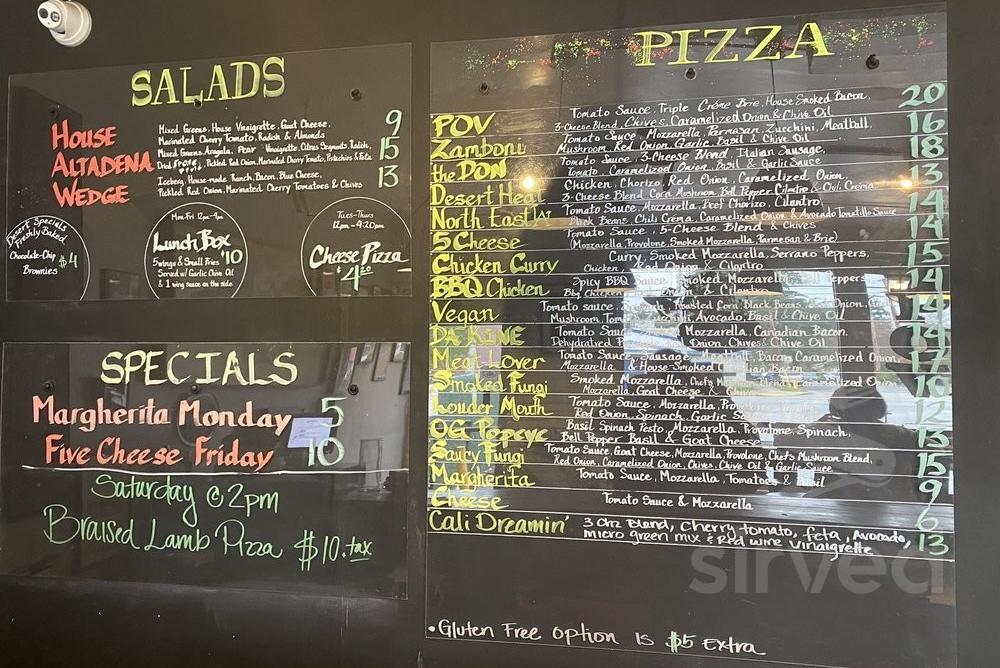 SALADS
HOUSE Mixed Greens, House Vinaigrette, Goat Cheese, 9
Marinated Cherry Tomato, Radish & Almonds
ALTADENA Mixed Greens, Arugala, Pear Vinaigrette, Citrus Segments, Radish, 15
Dried Pickled Red Onion, Marinated Cherry Tomato, Pistachios & Feta
WEDGE Iceberg, House-made Ranch, Bacon, Blue Cheese, 13
Pickled Red Onion, Marinated Cherry Tomatoes & Chives
Desert Specials
Freshly Baked
Chocolate-Chip $4
Brownies
Mon-Fri 12pm-4pm
Lunch Box
5wings & Small Fries $10
Served w/ Garlic Chive Oil
& 1 wing sauce on the side
Tues-Thurs
12pm-4:20pm
Cheese Pizza
$4.20
SPECIALS
Margherita Monday 5
Five Cheese Friday 10
Saturday @ 2pm
Braised Lamb Pizza $10.tax
PIZZA
POV Tomato Sauce, Triple Créme Brie, House Smoked Bacon, 20
3-Cheese Blend, Chives, Caramelized Onion & Chive Oil
Zamboni Tomato Sauce, Mozzarella, Parmazan, Zucchini, Meatball, 16
Mushroom, Red Onion, Garlic, Basil & Chive Oil
the DON Tomato Sauce, 3-Cheese Blend, Italian Sausage, 18
Tomato, Caramelized Onion, Basil & Garlic Sauce
Desert Heat Chicken, Chorizo, Red Onion, Caramelized Onion, 13
3-Cheese Blend, Corn, Mushroom, Bell Pepper, Cilantro & Chili Crema
North East LA Tomato Sauce, Mozzarella, Beef Chorizo, Cilantro, 14
Black Beans, Chili Crema, Caramelized Onion & Avocado Tomatillo Sauce
5 Cheese Tomato Sauce, 5-Cheese Blend & Chives 14
(Mozzarella, Provolone, Smoked Mozzarella, Parmesan & Brie)
Chicken Curry Curry, Smoked Mozzarella, Serrano Peppers, 15
Chicken, Red Onion & Cilantro
BBQ Chicken Spicy BBQ Sauce, Smoked, Mozzarella, Bell Peppers, 14
BBq Chicken & Cilantro
Vegan Tomato sauce, Roasted Corn, Black Beans, Onion, 14
Mushroom, Zucchini, Avocado, Basil & Chive Oil
DA KINE Tomato Sauce, Mozzarella, Canadian Bacon, 14
Dehydratred Onion, Chives & Chive Oil
Meat Lover Tomato Sauce, Sausage, Meatball, Bacon, Caramelized Onion, 17
Mozzarella & House Smoked Bacon
Smoked Fungi Smoked Mozzarella, Chef's Mushroom Blend, Caramelized Onion,
Mozzarella, Goat Cheese & Chive
Louder Mouth Tomato Sauce, Mozzarella, Provolone, 12
Red Onion, Spinach, Garlic Sauce
OG Popeye Basil Spinach Pesto, Mozzarella, Provolone, Spinach, 13
Bell Pepper Basil & Goat Cheese
Saucy Fungi Tomato Sauce, Goat Cheese, Mozzarella, Provolone, Chef's Mushroom Blend, 15
Red Onion, Caramelized Onion, Chives, Chive Oil & Garlic Sauce
Margherita Tomato Sauce, Mozzarella, Tomatoes & Basil 9
Cheese Tomato Sauce & Mozzarella 6
Cali Dreamin' 3 Chz Blend, Cherry tomato, feta, Avocado, 13
micro green mix & Red wine vinaigrette
•Gluten Free Option Is $5 Extra
sirved